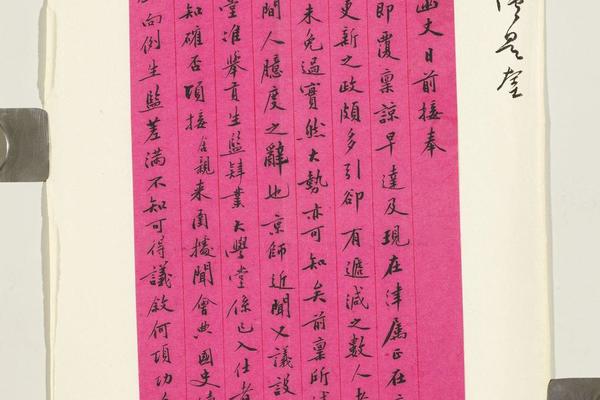 奎
幽史日前接奉
即覆禀諒早達及現在津属正在
更新之政頗多引卻有遞減之數人
未免過實然大勢亦可知矣前禀所
間人臆度之辭也京師近聞又議設
堂准舉貢生監肄業大學堂係已入仕者
知確否頃接舍親来函據聞會典國史
向例生監差滿不知可得議敘何項功